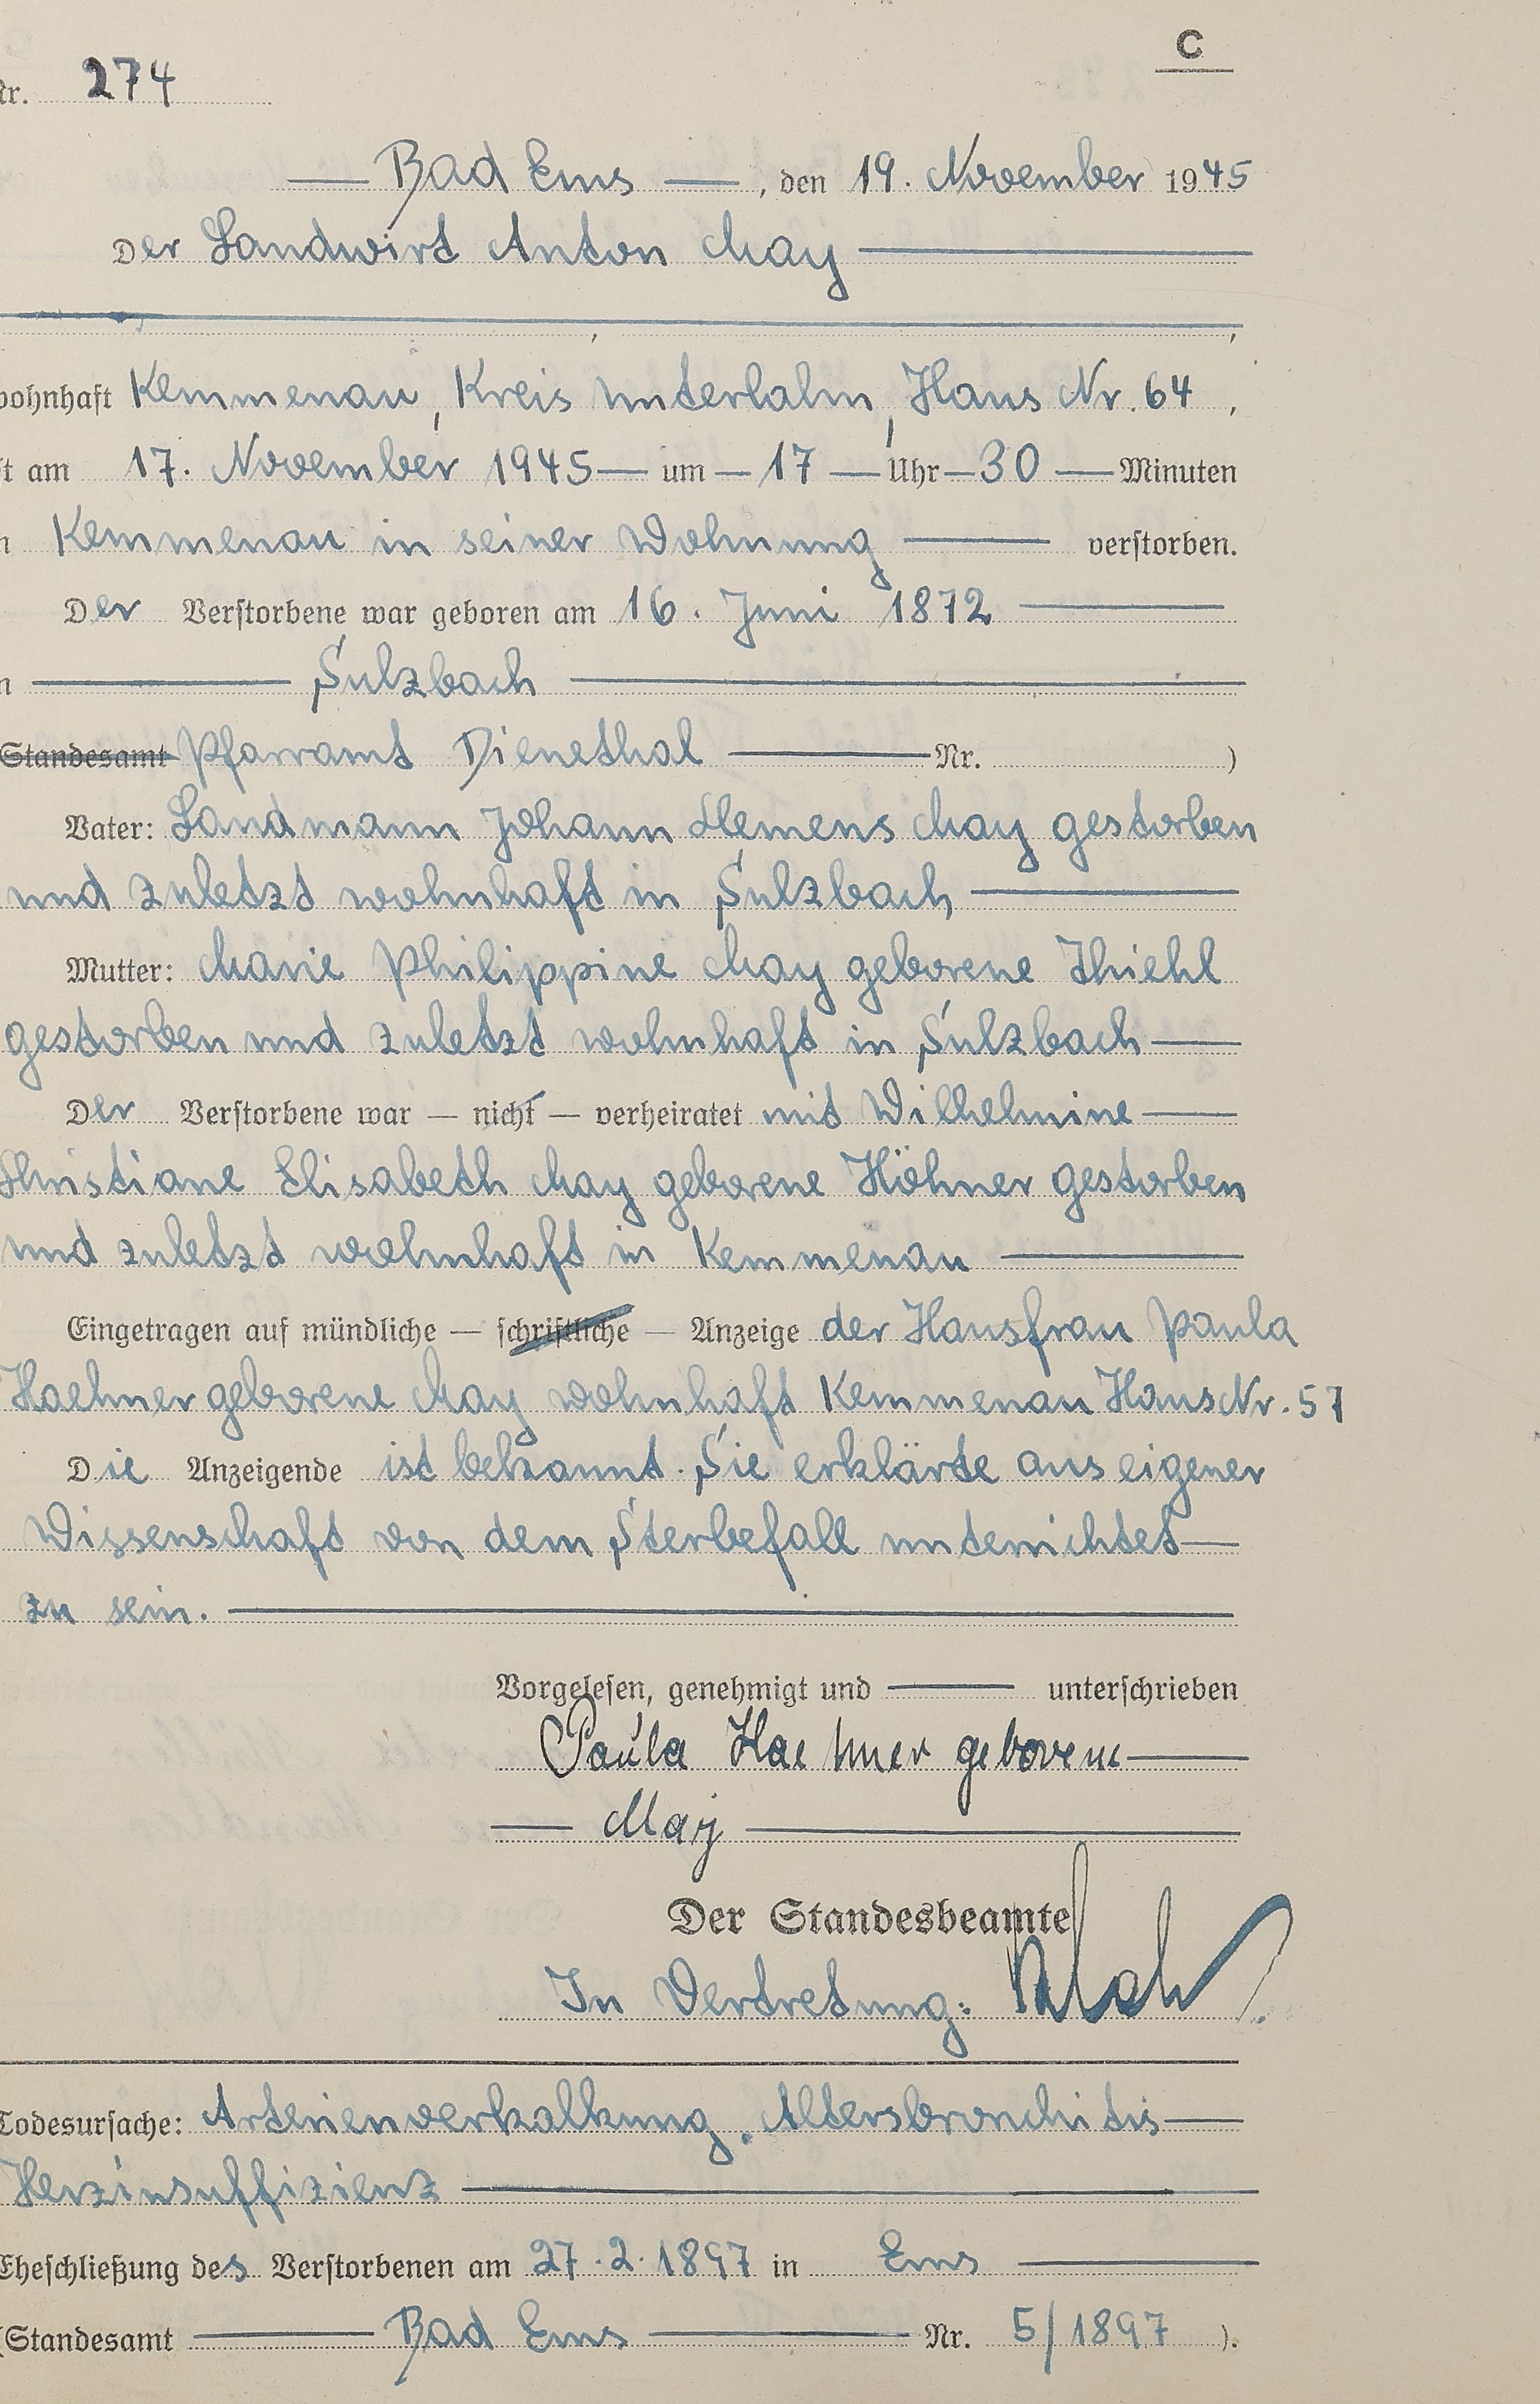 C
Nr. 274
Bad Ems, den 19. November 1945
Der Landwirt Anton May
wohnhaft Kemmenau, Kreis Unterlahn, Haus Nr. 64,
ist am 17. November 1945 um 17 Uhr 30 Minuten
in Kemmenau in seiner Wohnung verstorben.
Der Verstorbene war geboren am 16. Juni 1872
in Sulzbach
(Standesamt Pfarramt Dienethal Nr. )
Vater: Landmann Johann Clemens May gestorben
und zuletzt wohnhaft in Sulzbach
Mutter: Marie Philippine May geborene Thiehl
gestorben und zuletzt wohnhaft in Sulzbach
Der Verstorbene war — nicht — verheiratet mit Wilhelmine
Christiane Elisabeth May geborene Höhner gestorben
und zuletzt wohnhaft in Kemmenau
Eingetragen auf mündliche — schriftliche — Anzeige der Hausfrau Paula
Haehner geborene May wohnhaft Kemmenau Haus Nr. 57
Die Anzeigende ist bekannt. Sie erklärte aus eigener
Wissenschaft von dem Sterbefall unterrichtet
zu sein.
Vorgelesen, genehmigt und unterschrieben
Paula Haehner geborene
May
Der Standesbeamte
In Vertretung:
Todesursache: Arterienverkalkung, Altersbronchitis
Herzinsuffizienz
Eheschließung des Verstorbenen am 27.2.1897 in Ems
(Standesamt Bad Ems Nr. 5/1897 ).